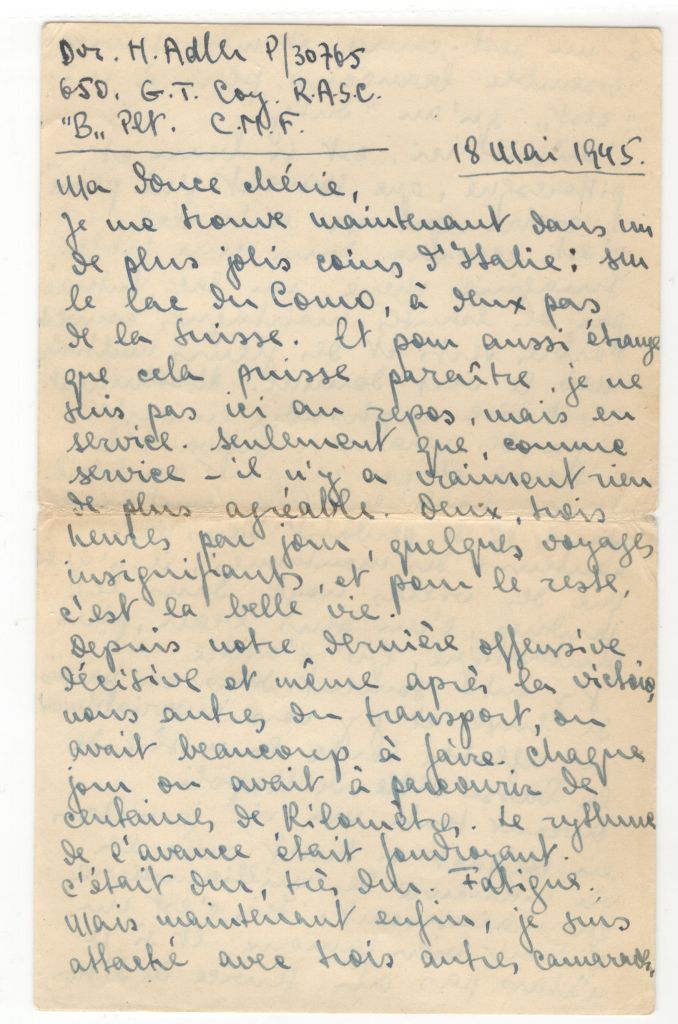 Dvr. H. Adler P/30765
650. G.T. Coy. R.A.S.C.
"B" Plt. C.M.F.
18 Mai 1945.
Ma douce chérie,
Je me trouve maintenant dans un
de plus jolis coins d'Italie: sur
le lac du Como, à deux pas
de la Suisse. Et pour aussi étrange
que cela puisse paraître, je ne
suis pas ici au repos, mais en
service. Seulement que, comme
service – il n'y a vraiment rien
de plus agréable. Deux, trois
heures par jour, quelques voyages
insignifiants, et pour le reste,
c'est la belle vie.
Depuis notre dernière offensive
décisive et même après la victoire,
nous autres du transport, on
avait beaucoup à faire. Chaque
jour on avait à parcourir de
centaines de Kilomètres. Le rythme
de l'avance était foudroyant.
C'était dur, très dur. Fatigue.
Mais maintenant enfin, je suis
attaché avec trois autres camarades,